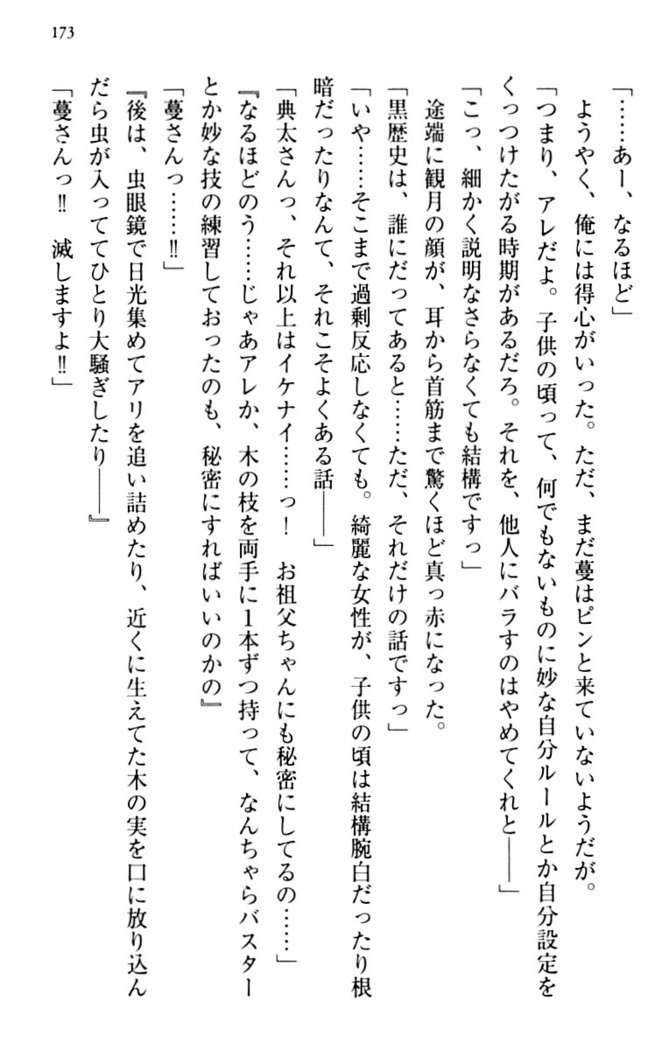 173
「……あー、なるほど」
　ようやく、俺には得心がいった。ただ、まだ蔓はピンと来ていないようだが。
「つまり、アレだよ。子供の頃って、何でもないものに妙な自分ルールとか自分設定を
くっつけたがる時期があるだろ。それを、他人にバラすのはやめてくれと――」
「こっ、細かく説明なさらなくても結構ですっ」
　途端に観月の顔が、耳から首筋まで驚くほど真っ赤になった。
「黒歴史は、誰にだってあると……ただ、それだけの話ですっ」
「いや……そこまで過剰反応しなくても。綺麗な女性が、子供の頃は結構腕白だったり根
暗だったりなんて、それこそよくある話――」
「典太さんっ、それ以上はイケナイ……っ！　お祖父ちゃんにも秘密にしてるの……」
『なるほどのう……じゃあアレか、木の枝を両手に１本ずつ持って、なんちゃらバスター
とか妙な技の練習しておったのも、秘密にすればいいのかの』
「蔓さんっ……‼」
『後は、虫眼鏡で日光集めてアリを追い詰めたり、近くに生えてた木の実を口に放り込ん
だら虫が入っててひとり大騒ぎしたり――』
「蔓さんっ‼　滅しますよ‼」